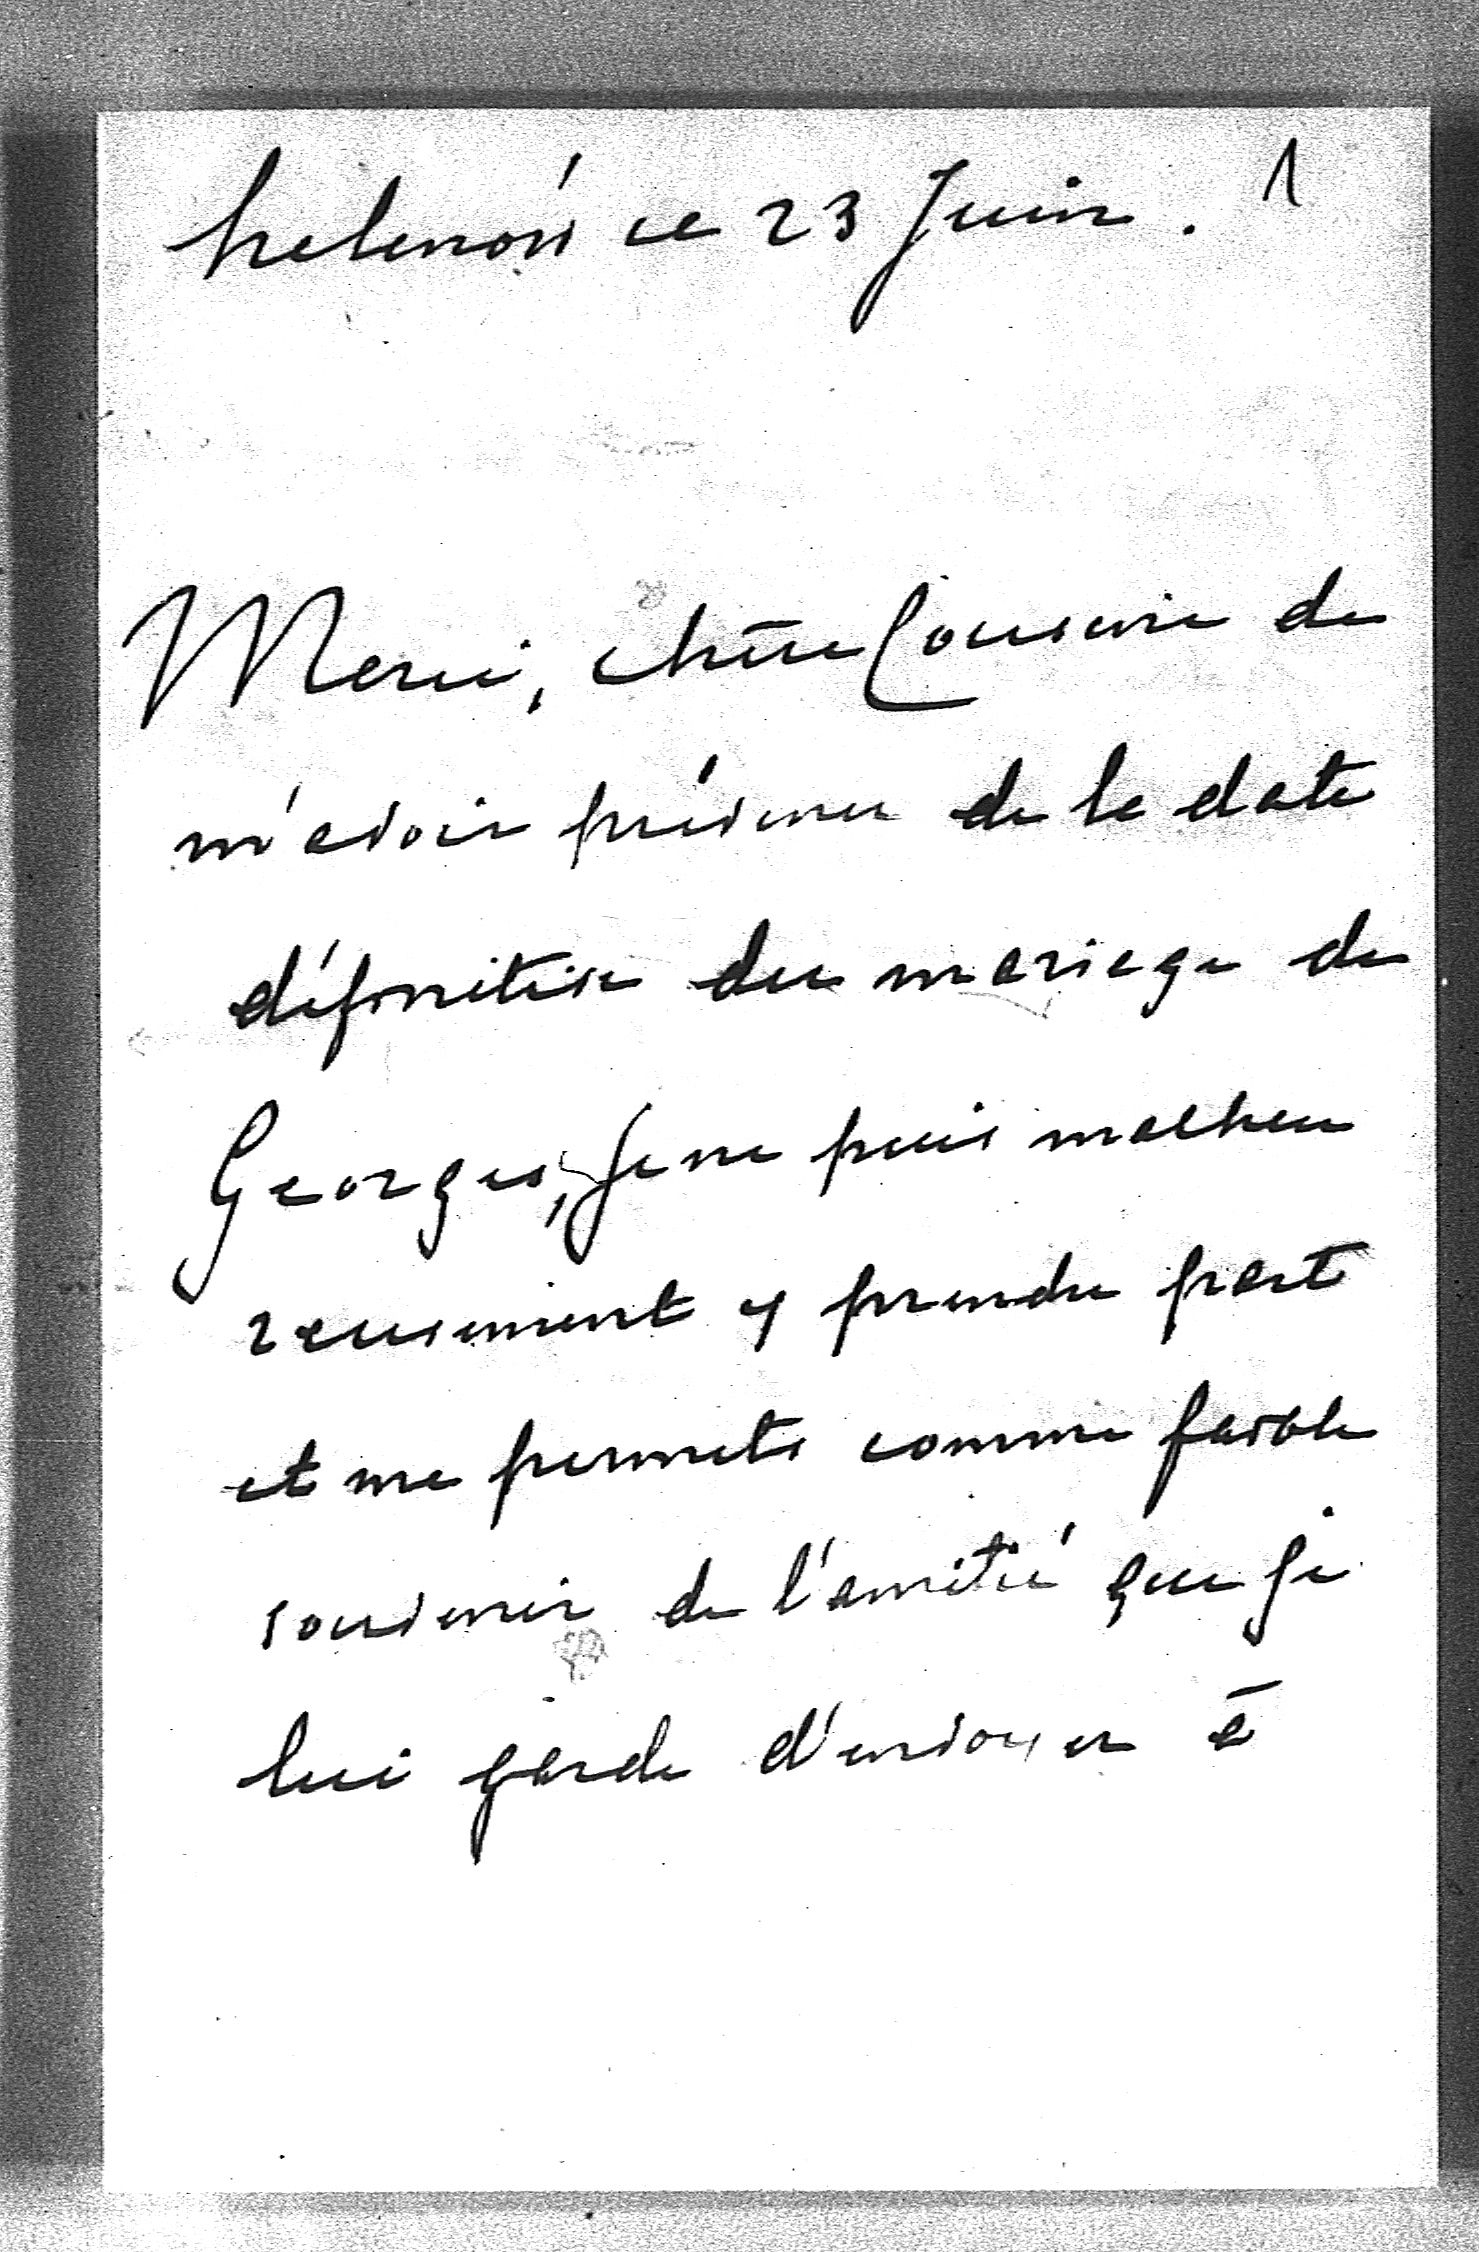 ce 23 Juin. 1
Merci, chère Cousine de
m'avoir prévenu de la date
définitive du mariage de
Georges, Je ne puis malheu
reusement y prendre part
et me permets comme faible
souvenir de l'amitié que je
lui garde d'envoyer à